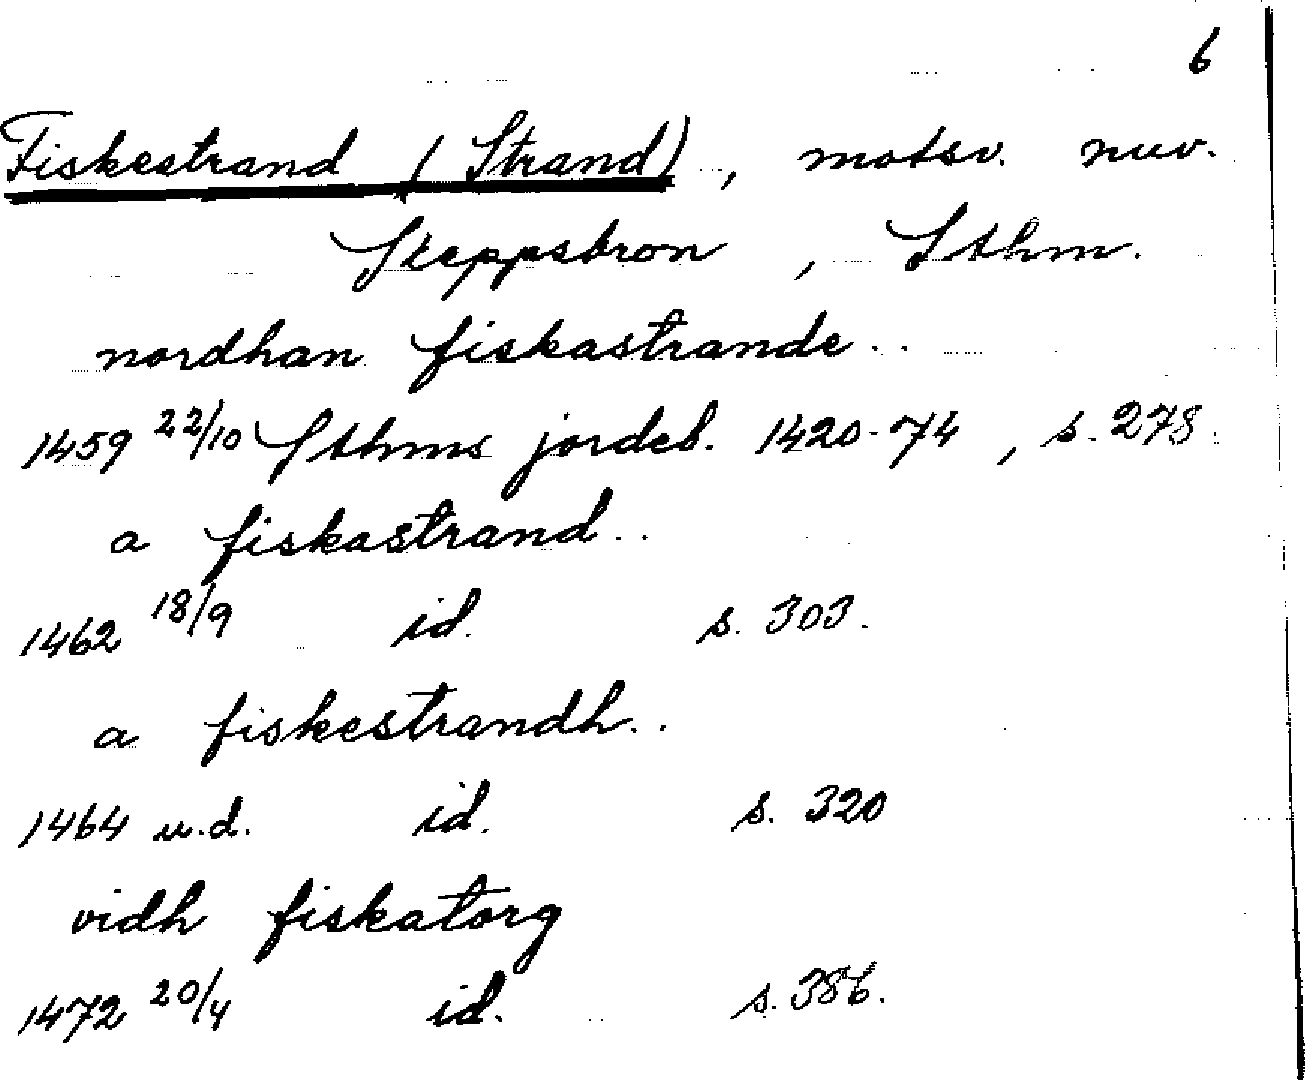 6
Fiskestrand (Strand), motsv. nuv.
Skeppsbron, Sthm.
nordhan fiskastrande..
1459 22/10 Sthms jordeb. 1420-74, s. 278.
a fiskastrand..
1462 18/9 id. s. 303.
a fiskestrandh..
1464 u.d. id. s. 320
vidh fiskatorg
1472 20/4 id. s. 386.